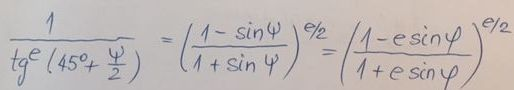 1 / tg^e (45° + ψ/2) = ((1 - sin ψ) / (1 + sin ψ))^e/2 = ((1 - e sin φ) / (1 + e sin φ))^e/2